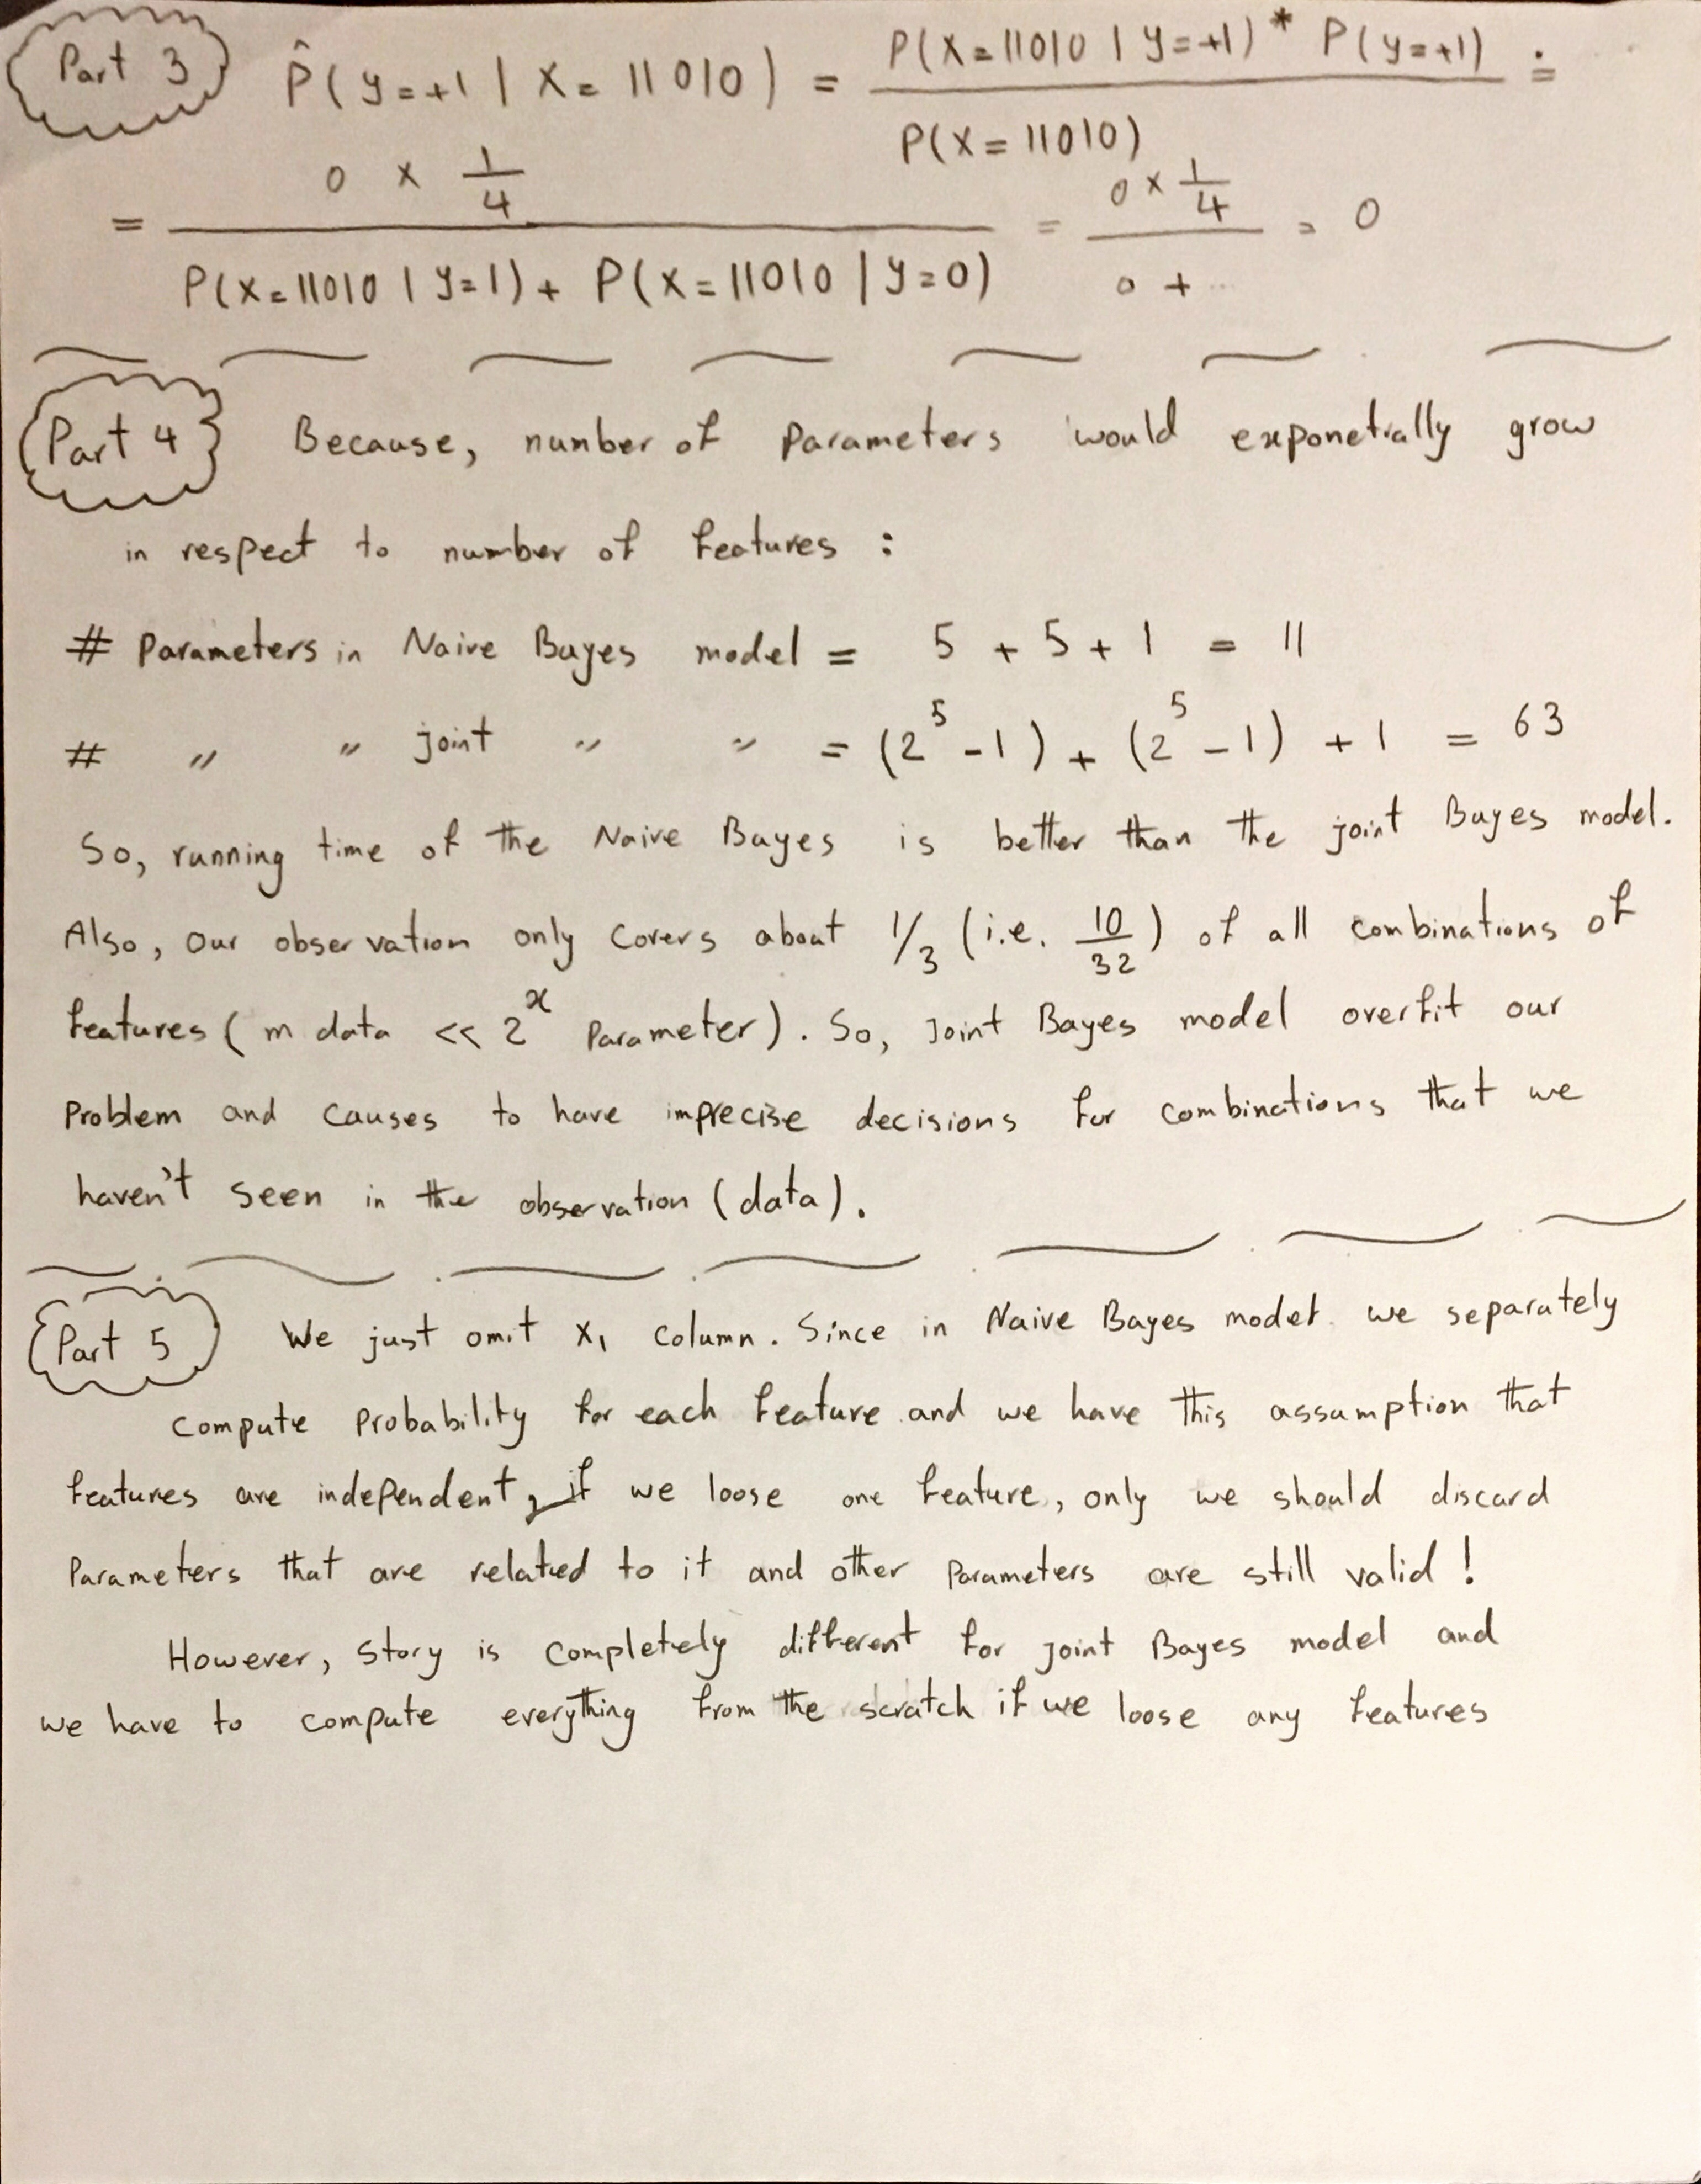 Part 3 P̂(y=+1 | X=11010) = P(X=11010 | y=+1) * P(y=+1) / P(X=11010) =
= 0 × 1/4 / P(X=11010 | y=1) + P(X=11010 | y=0) = 0 × 1/4 / 0 + ... = 0
Part 4 Because, number of parameters would exponetially grow
in respect to number of features :
# Parameters in Naive Bayes model = 5 + 5 + 1 = 11
# " " joint " " = (2^5 - 1) + (2^5 - 1) + 1 = 63
So, running time of the Naive Bayes is better than the joint Bayes model.
Also, our observation only covers about 1/3 (i.e. 10/32) of all combinations of
features ( m data << 2^x Parameter). So, Joint Bayes model overfit our
Problem and causes to have imprecise decisions for combinations that we
haven't seen in the observation (data).
Part 5 We just omit x₁ column. Since in Naive Bayes model we separately
compute probability for each feature and we have this assumption that
features are independent, if we loose one feature, only we should discard
Parameters that are related to it and other parameters are still valid!
However, story is completely different for joint Bayes model and
we have to compute everything from the scratch if we loose any features